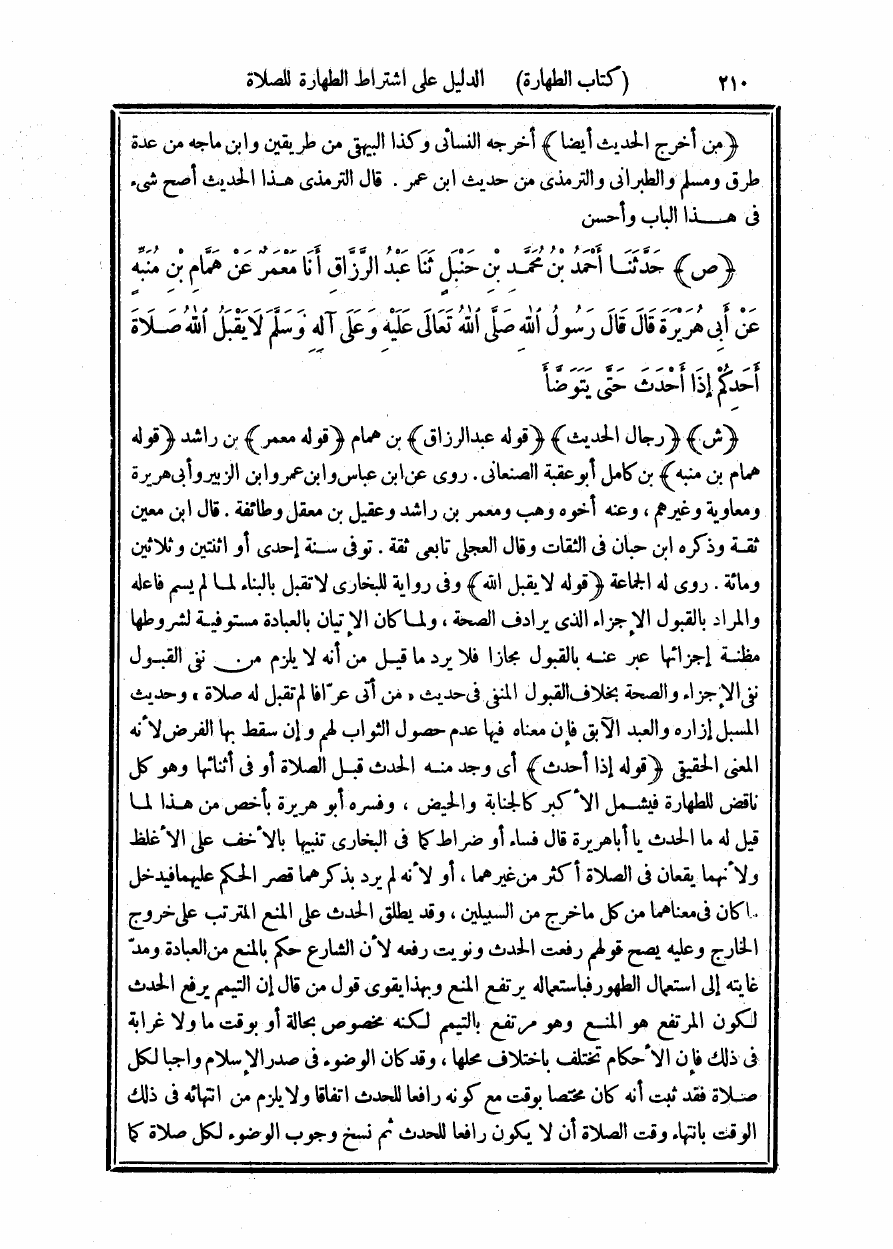 ٢١٠ (كتاب الطهارة) الدليل على اشتراط الطهارة للصلاة
﴿من أخرج الحديث أيضا﴾ أخرجه النسائى وكذا البيهقى من طريقين وابن ماجه من عدة
طرق ومسلم والطبرانى والترمذى من حديث ابن عمر . قال الترمذى هذا الحديث أصح شىء
فى هذا الباب وأحسن
﴿ص﴾ حَدَّثَنَا أَحْمَدُ بْنُ مُحَمَّدِ بْنِ حَنْبَلٍ ثَنَا عَبْدُ الرَّزَّاقِ أَنَا مَعْمَرٌ عَنْ هَمَّامِ بْنِ مُنَبِّهٍ
عَنْ أَبِى هُرَيْرَةَ قَالَ قَالَ رَسُولُ اللهِ صَلَّى اللهُ تَعَالَى عَلَيْهِ وَعَلَى آلِهِ وَسَلَّمَ لَا يَقْبَلُ اللهُ صَلَاةَ
أَحَدِكُمْ إِذَا أَحْدَثَ حَتَّى يَتَوَضَّأَ
﴿ش﴾ ﴿رجال الحديث﴾ ﴿قوله عبدالرزاق﴾ بن همام ﴿قوله معمر﴾ بن راشد ﴿قوله
همام بن منبه﴾ بن كامل أبو عقبة الصنعانى . روى عن ابن عباس وابن عمر وابن الزبير وأبى هريرة
ومعاوية وغيرهم ، وعنه أخوه وهب ومعمر بن راشد وعقيل بن معقل وطائفة . قال ابن معين
ثقة وذكره ابن حبان فى الثقات وقال العجلى تابعى ثقة . توفى سنة إحدى أو اثنتين وثلاثين
ومائة . روى له الجماعة ﴿قوله لا يقبل الله﴾ وفى رواية للبخارى لا تقبل بالبناء لما لم يسم فاعله
والمراد بالقبول الإجزاء الذى يرادف الصحة ، ولما كان الإتيان بالعبادة مستوفية لشروطها
مظنة إجزائها عبر عنه بالقبول مجازا فلا يرد ما قيل من أنه لا يلزم من نفى القبول
نفى الإجزاء والصحة بخلاف القبول المنفى فى حديث « من أتى عرّافا لم تقبل له صلاة » وحديث
المسبل إزاره والعبد الآبق فإن معناه فيها عدم حصول الثواب لهم وإن سقط بها الفرض لأنه
المعنى الحقيقى ﴿قوله إذا أحدث﴾ أى وجد منه الحدث قبل الصلاة أو فى أثنائها وهو كل
ناقض للطهارة فيشمل الأكبر كالجنابة والحيض ، وفسره أبو هريرة بأخص من هذا لما
قيل له ما الحدث يا أبا هريرة قال فساء أو ضراط كما فى البخارى تنبيها بالأخف على الأغلظ
ولأنهما يقعان فى الصلاة أكثر من غيرهما ، أو لأنه لم يرد بذكرهما قصر الحكم عليهما فيدخل
ما كان فى معناهما من كل ما خرج من السبيلين ، وقد يطلق الحدث على المنع المترتب على خروج
الخارج وعليه يصح قولهم رفعت الحدث ونويت رفعه لأن الشارع حكم بالمنع من العبادة ومدّ
غايته إلى استعمال الطهور فباستعماله يرتفع المنع وبهذا يقوى قول من قال إن التيمم يرفع الحدث
لكون المرتفع هو المنع وهو مرتفع بالتيمم لكنه مخصوص بحالة أو بوقت ما ولا غرابة
فى ذلك فإن الأحكام تختلف باختلاف محلها ، وقد كان الوضوء فى صدر الإسلام واجبا لكل
صلاة فقد ثبت أنه كان مختصا بوقت مع كونه رافعا للحدث اتفاقا ولا يلزم من انتهائه فى ذلك
الوقت بانتهاء وقت الصلاة أن لا يكون رافعا للحدث ثم نسخ وجوب الوضوء لكل صلاة كما